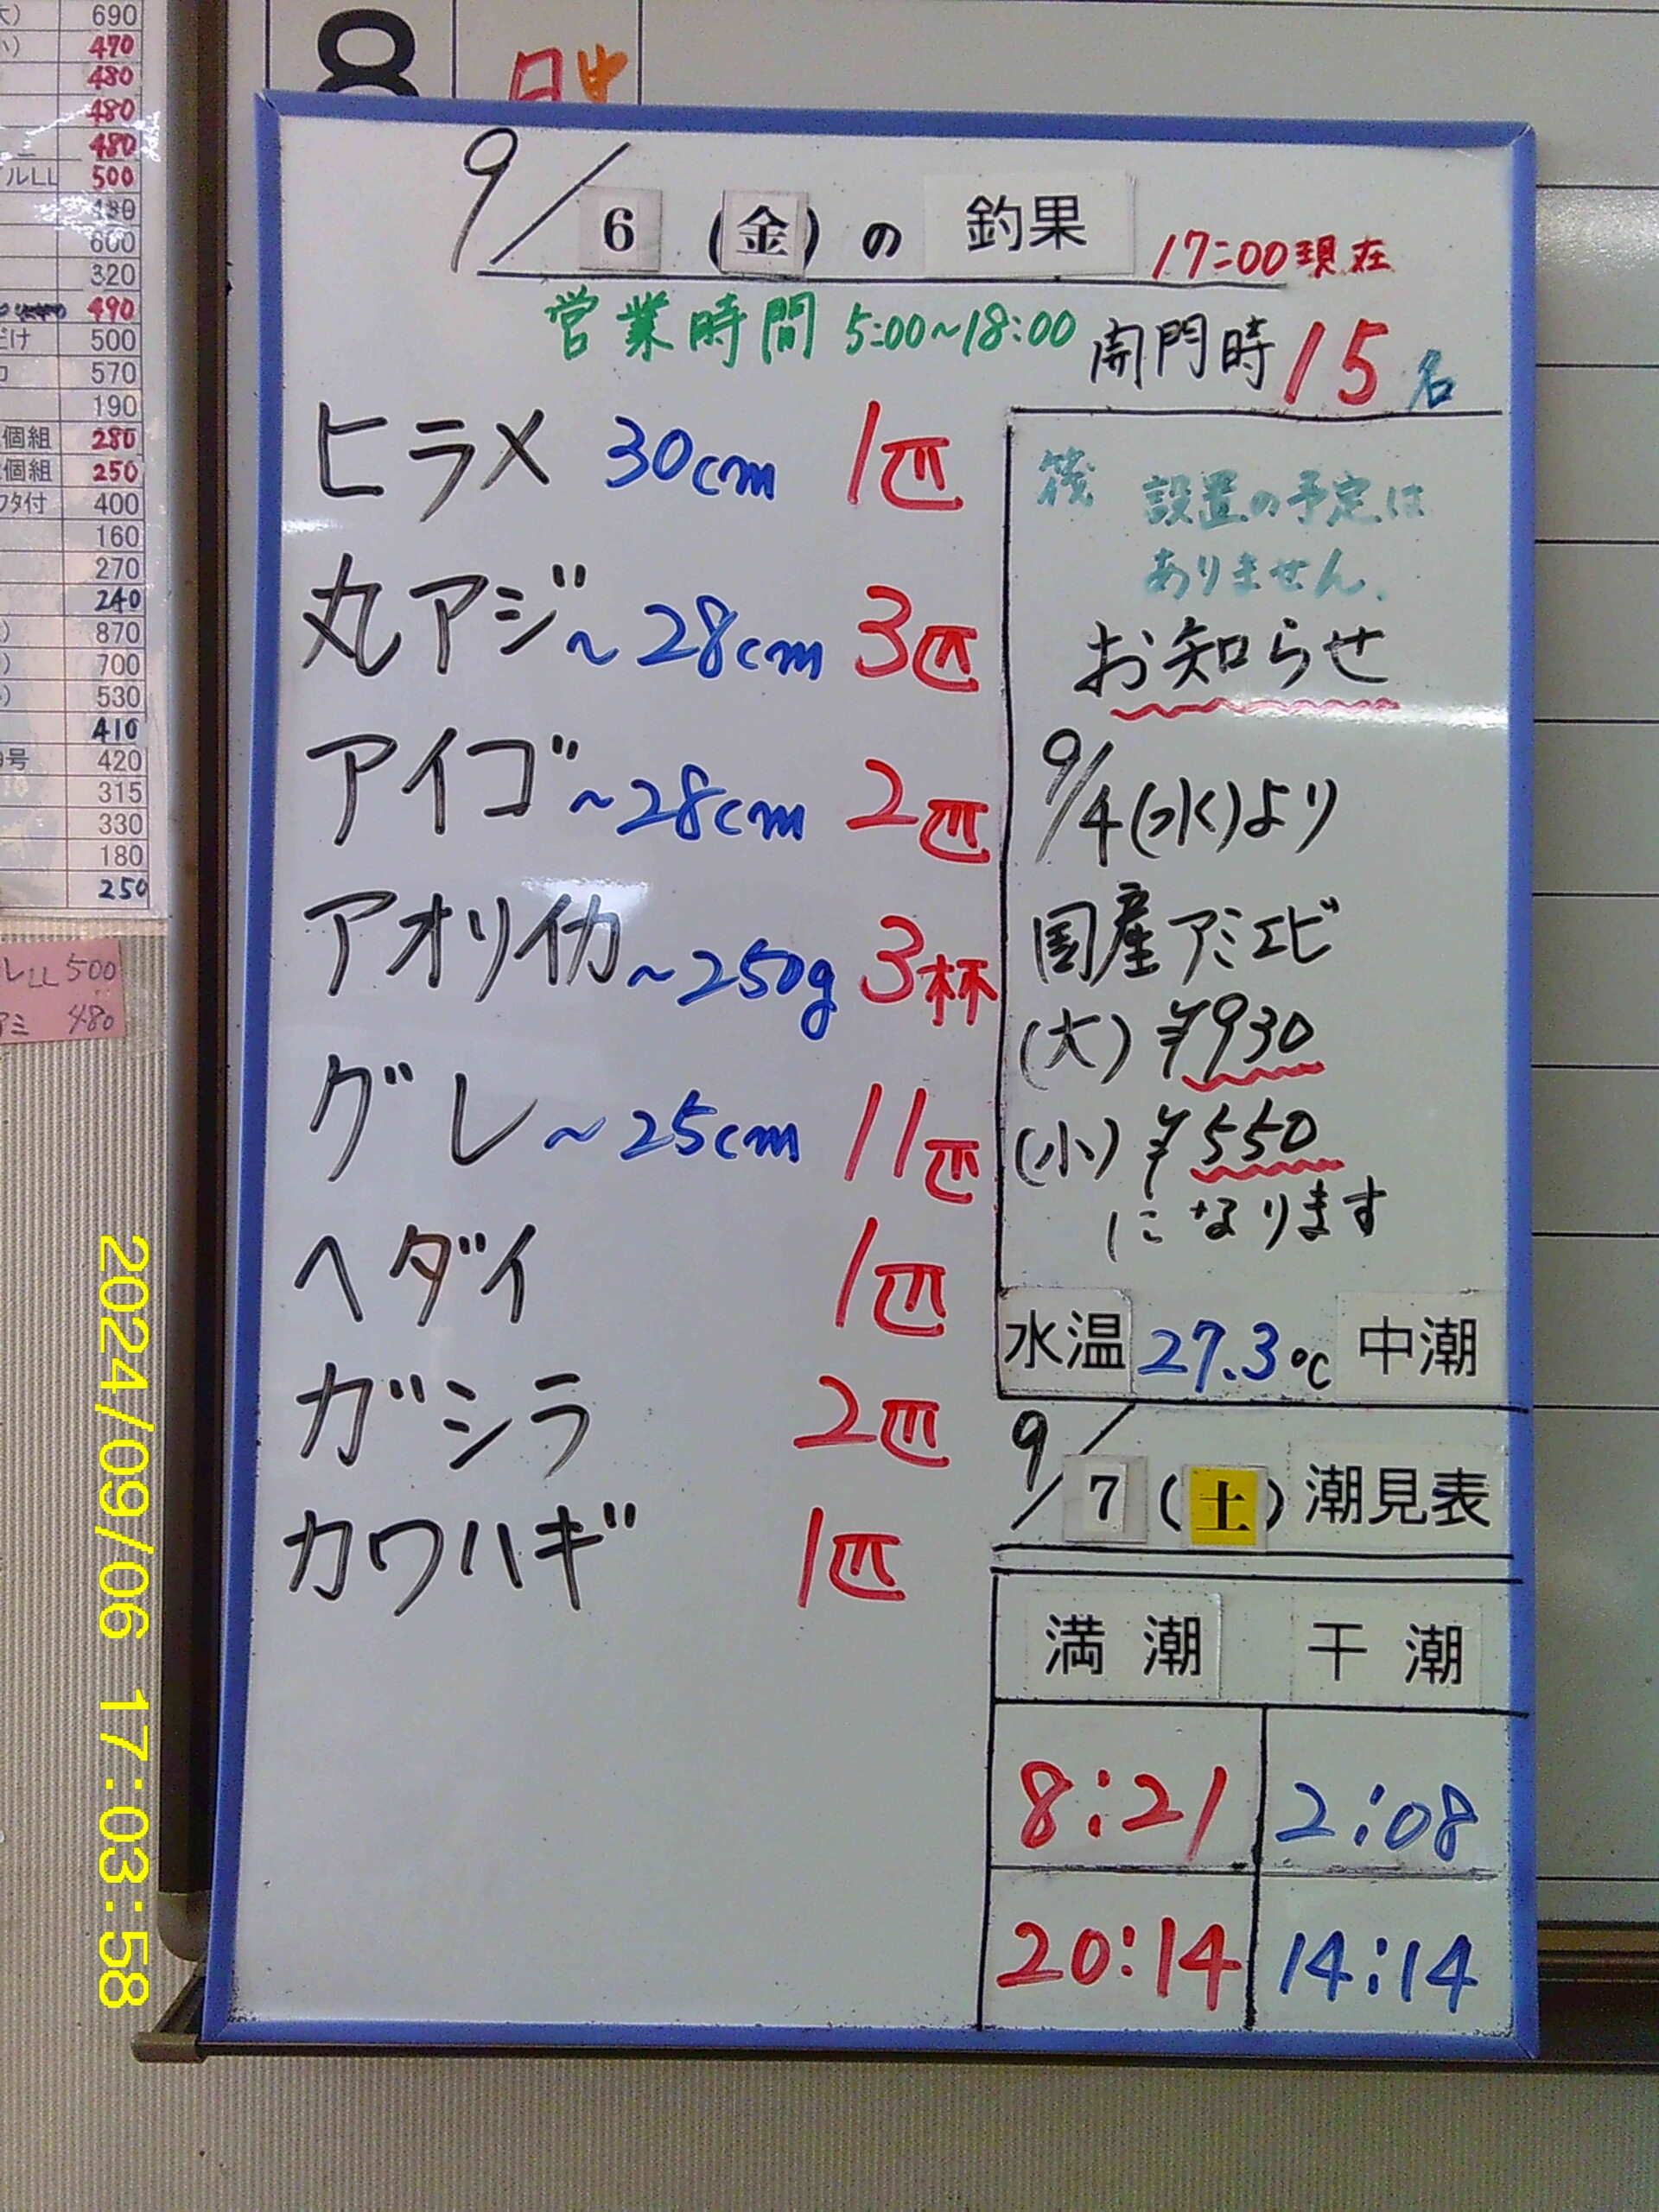 8
日中
9/6(金)の釣果 17:00現在
営業時間 5:00~18:00
開門時15名
ヒラメ 30cm 1匹
丸アジ~28cm 3匹
アイゴ~28cm 2匹
アオリイカ~250g 3杯
グレ~25cm 11匹
ヘダイ 1匹
ガシラ 2匹
カワハギ 1匹
筏 設置の予定は
ありません.
お知らせ
9/4(水)より
国産アミエビ
(大) ¥930
(小) ¥550
になります
水温 27.3℃ 中潮
9/7(土)潮見表
満潮 干潮
8:21 2:08
20:14 14:14
690
470
480
480
480
ルLL 500
480
600
320
490
だけ 500
570
190
個組 280
個組 250
フタ付 400
160
270
240
870
700
530
410
号 420
315
330
180
250
レLL 500
アミ 480
2024/09/06 17:03:58